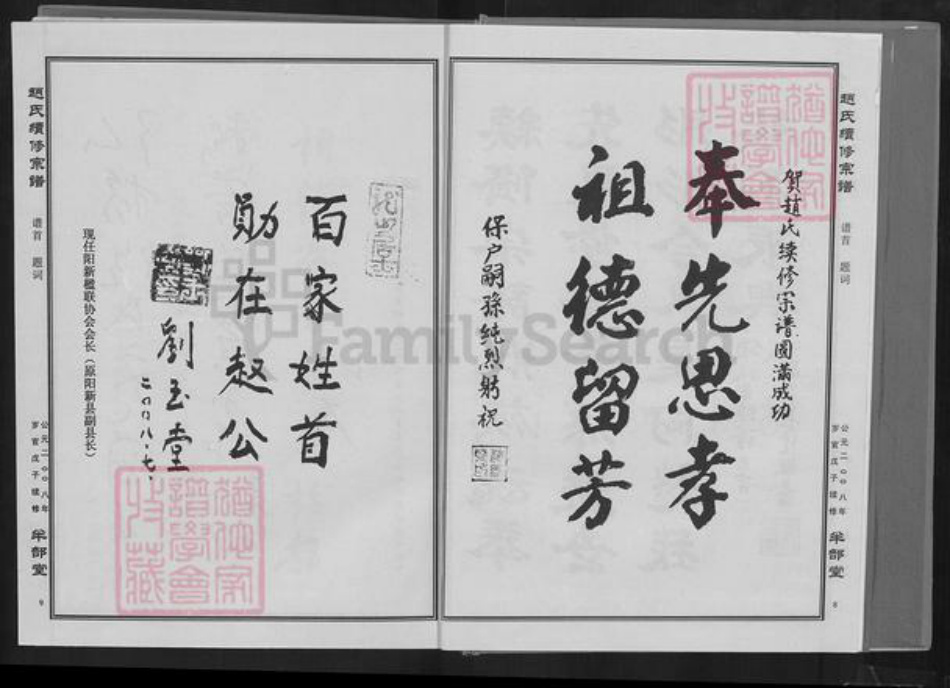 趙氏續修宗譜
谱首 题词
公元二〇〇八年
岁官戊子续修
半部堂
8
贺赵氏续修宗谱圆满成功
奉先思孝
祖德留芳
保户嗣孫純烈敬祝
百家姓首
勋在赵公
劉玉堂
二〇〇八.七.
现任阳新楹联协会会长（原阳新县副县长）
趙氏續修宗譜
谱首 题词
公元二〇〇八年
岁官戊子续修
半部堂
9
譜學會
收藏
譜學會
收藏
FamilySearch